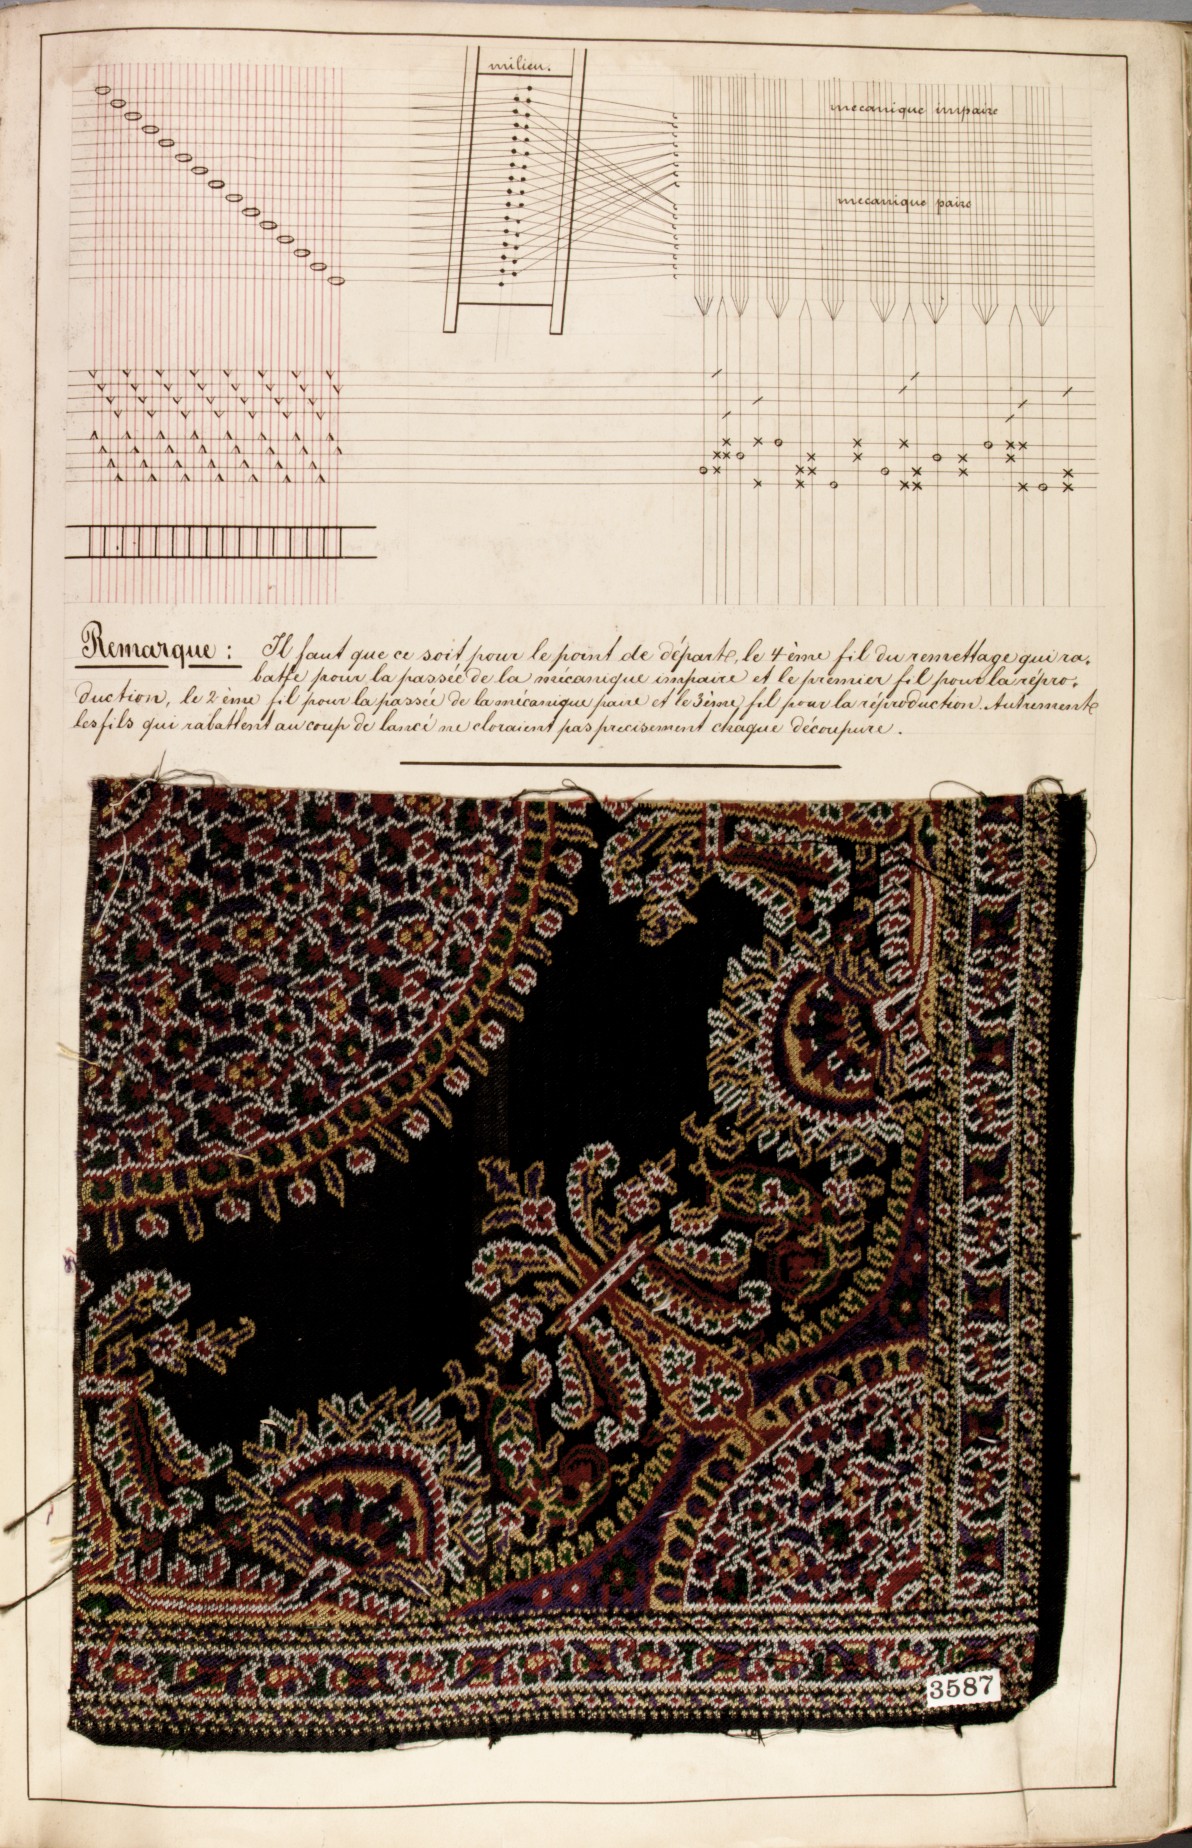 milieu.
mecanique impaire
mecanique paire
Remarque : Il faut que ce soit pour le point de départ, le 4ème fil du remettage qui ra-
batte pour la passée de la mécanique impaire et le premier fil pour la répro-
duction, le 2ème fil pour la passée de la mécanique paire et le 3ème fil pour la réproduction. Autrement
les fils qui rabattent au coup de lancé ne cloraient pas precisement chaque découpure.
3587